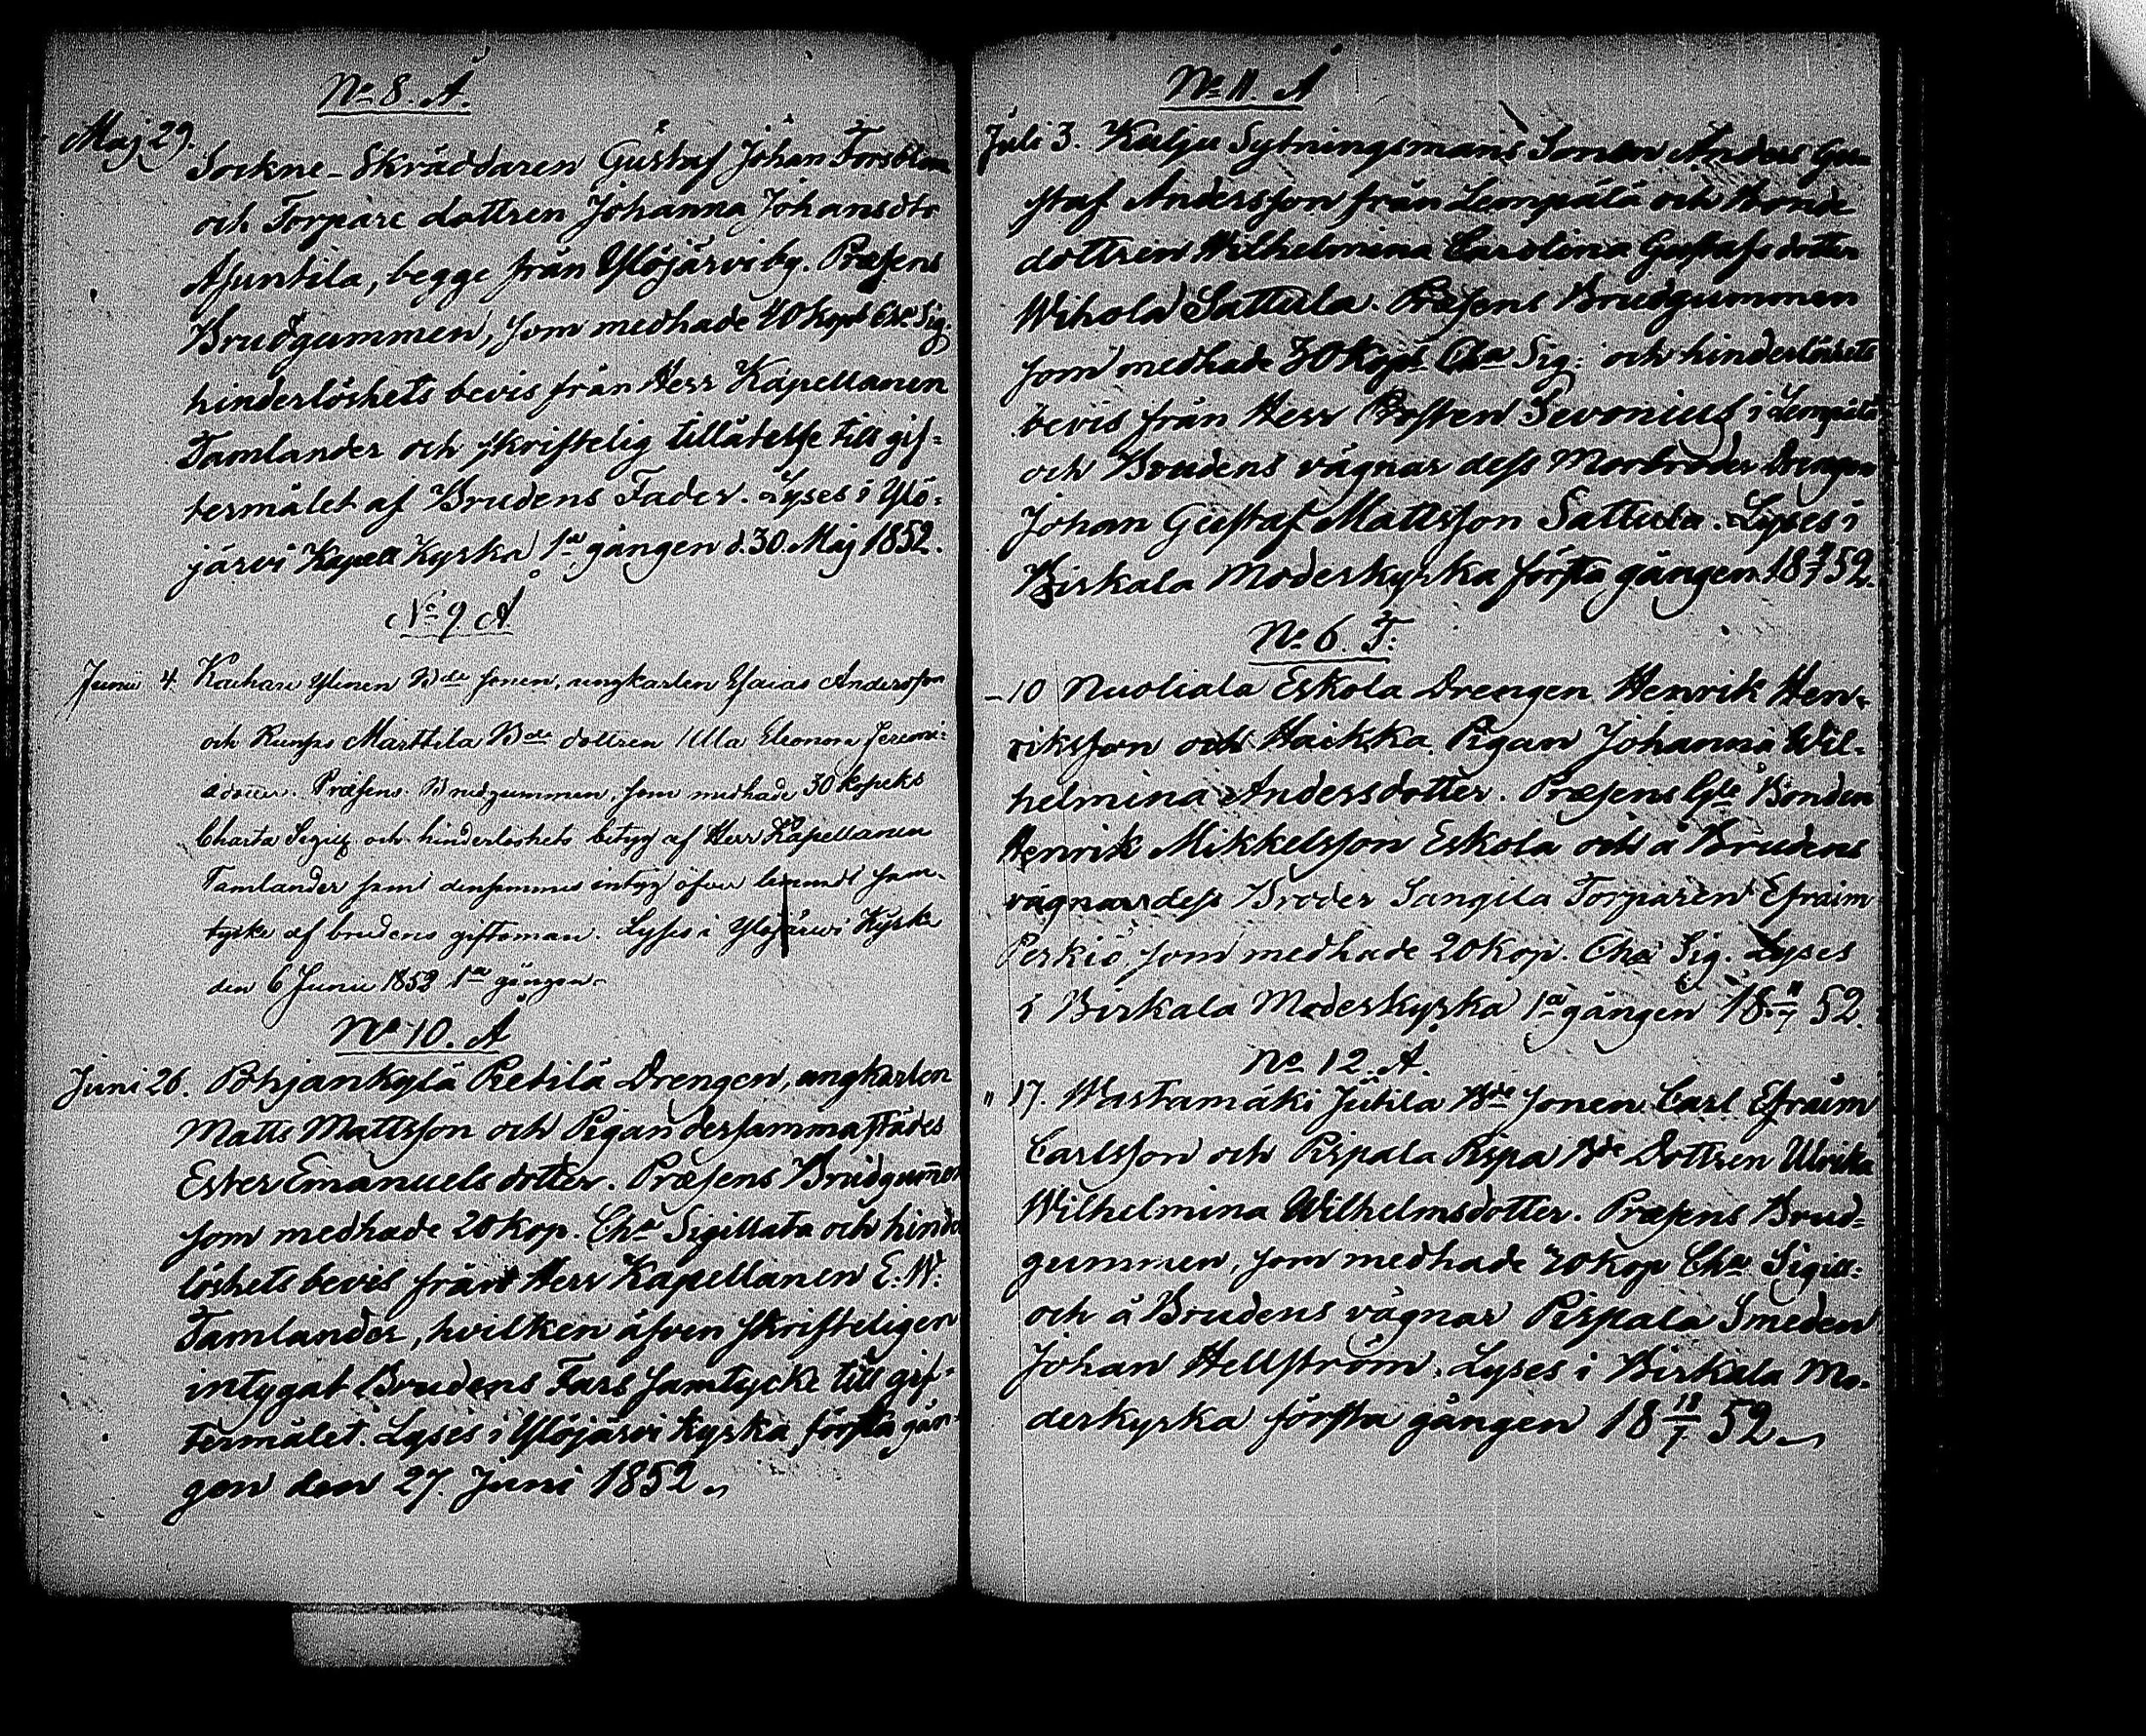 No 8. A.
Maj 29.
Sockne-Skräddaren Gustaf Johan Forsblom
och Torpare dottren Johanna Johansdtr
Asuntila, begge från Ylöjärvi by. Præsens
Brudgummen, som medhade 20 Kops Cha Sig.
hinderlöshets bevis från Herr Kapellanen
Tamlander och skriftelig tillåtelse till gif-
termålet af Brudens Fader. Lyses i Ylö-
järvi Kapell Kyrka 1a gången d. 30. Maj 1852.
No 9. A
Junii 4. Kaihari Ylinen Bde sonen, ungkarlen Esaias Andersson
och Runsas Marttila Bde dottren Ulla Eleonora Jeremi-
adotter. Præsens Brudgummen, som medhade 30 kopeks
Charta Sigill och hinderlöshets betyg af Herr Kapellanen
Tamlander samt densammes intyg öfver lemnadt sam-
tycke af brudens giftoman. Lyses i Ylöjärwi Kyrka
den 6 Junii 1852 1a gången.
No 10. A
Juni 26. Pohjankylä Retilä Drengen, ungkarlen
Matts Mattsson och Pigan dersammastädes
Ester Emanuelsdotter. Præsens Brudgummen
som medhade 20 kop. Cha Sigillata och hinder
löshets bevis från Herr Kapellanen E. W.
Tamlander, hvilken äfven skrifteligen
intygat Brudens Fars samtycke till gif-
termålet. Lyses i Ylöjärvi kyrka första gån-
gen den 27. Juni 1852.
No 11. A
Juli 3. Kulju Sytningsmans Sonen Anders Gu-
staf Andersson från Lempälä och Bonde
dottren Wilhelmina Carolina Gustafsdotter
Wihola Sattula. Præsens Brudgummen
som medhade 30 Kops Cha Sig: och hinderlöshets
bevis från Herr Prosten Sevonius i Lempälä
och Brudens vägnar dess Morbroder Drengen
Johan Gustaf Mattsson Sattula. Lyses i
Birkala Moderkyrka första gången 18 4/7 52.
No 6. F.
- 10 Nuoliala Eskola Drengen Henrik Hen-
riksson och Haikka Pigan Johanna Wil-
helmina Andersdotter. Præsens Gle Bonden
Henrik Mikkelsson Eskola och å Brudens
vägnar dess Broder Sangila Torparen Efraim
Perkiö, som medhade 20 kop. Cha Sig. Lyses
i Birkala Moderkyrka 1a gången 18 11/7 52.
No 12. A.
" 17. Wastamäki Jütila Bde sonen Carl Efraim
Carlsson och Pispala Pispa Bde Dottren Ulrika
Wilhelmina Wilhelmsdotter. Præsens Brud-
gummen, som medhade 20 kop Cha Sigill.
och å Brudens vägnar Pispala Smeden
Johan Hellström. Lyses i Birkala Mo-
derkyrka första gången 18 18/7 52.